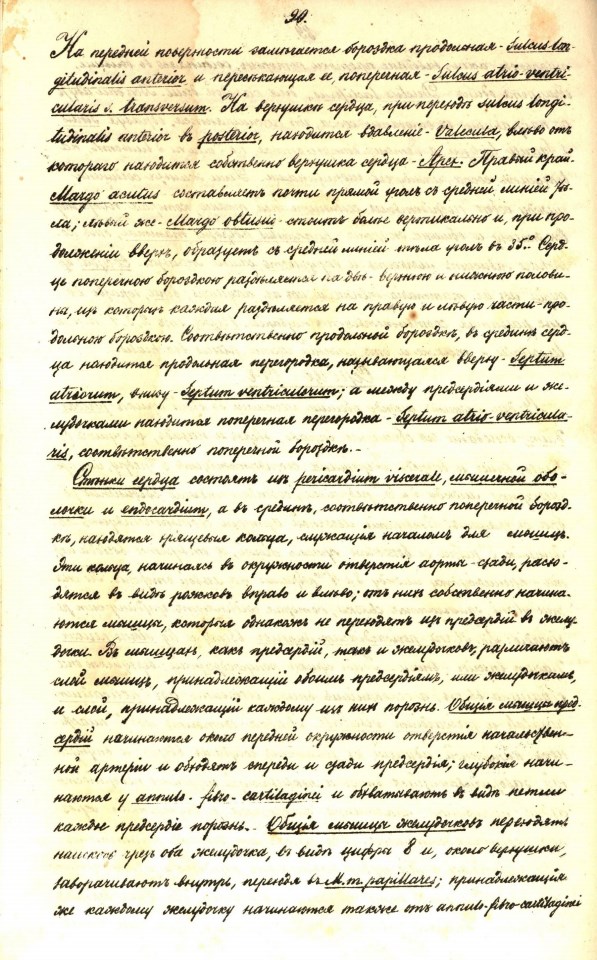 20.
На передней поверхности замѣчается бороздка продольная - Sulcus lon-
gitudinalis anterior и пересѣкающая ее поперечная - Sulcus atrio-ventri-
cularis s. transversum. На верхушкѣ сердца, при переходѣ sulcus longi-
tudinalis anterior въ posterior, находится вдавленіе - Valecula, влѣво отъ
котораго находится собственно верхушка сердца - Apex. Правый край -
Margo acutus составляетъ почти прямой уголъ съ средней линіей тѣ-
ла; лѣвый же - Margo obtusus - стоитъ болѣе вертикально и, при про-
долженіи вверхъ, образуетъ съ средней линіей тѣла уголъ въ 35°. Серд-
це поперечною бороздкою раздѣляется на двѣ - верхнюю и нижнюю полови-
ны, изъ которыхъ каждая раздѣляется на правую и лѣвую части - про-
дольною бороздкою. Соотвѣтственно продольной бороздкѣ, въ срединѣ серд-
ца находится продольная перегородка, называющаяся вверху - Septum
atriorum, внизу - Septum ventriculorum; а между предсердіями и же-
лудочками находится поперечная перегородка - Septum atrio-ventricula-
ris, соотвѣтственно поперечной бороздкѣ. -
Стѣнки сердца состоятъ изъ pericardium viscerale, мышечной обо-
лочки и endocardium, а въ срединѣ, соотвѣтственно поперечной борозд-
кѣ, находятся хрящевыя кольца, служащія началомъ для мышцъ.
Эти кольца, начинаясь въ окружности отверстія аорты - сзади, расхо-
дятся въ видѣ рожковъ вправо и влѣво; отъ нихъ собственно начина-
ются мышцы, которыя однакожъ не переходятъ изъ предсердій въ желу-
дочки. Въ мышцахъ, какъ предсердій, такъ и желудочковъ, различаютъ
слой мышцъ, принадлежащій обоимъ предсердіямъ, или желудочкамъ,
и слой, принадлежащій каждому изъ нихъ порознь. Общія мышцы пред-
сердій начинаются около передней окружности отверстія начальствен-
ной артеріи и обходятъ спереди и сзади предсердія; глубокія начи-
наются у annulo-fibro-cartilaginei и обхватываютъ въ видѣ петли
каждое предсердіе порознь. - Общія мышцы желудочковъ переходятъ
наискось чрезъ оба желудочка, въ видѣ цифры 8 и, около верхушки,
заворачиваютъ внутрь, переходя въ M.m. papillares; принадлежащія
же каждому желудочку начинаются также отъ annulo-fibro-cartilaginei